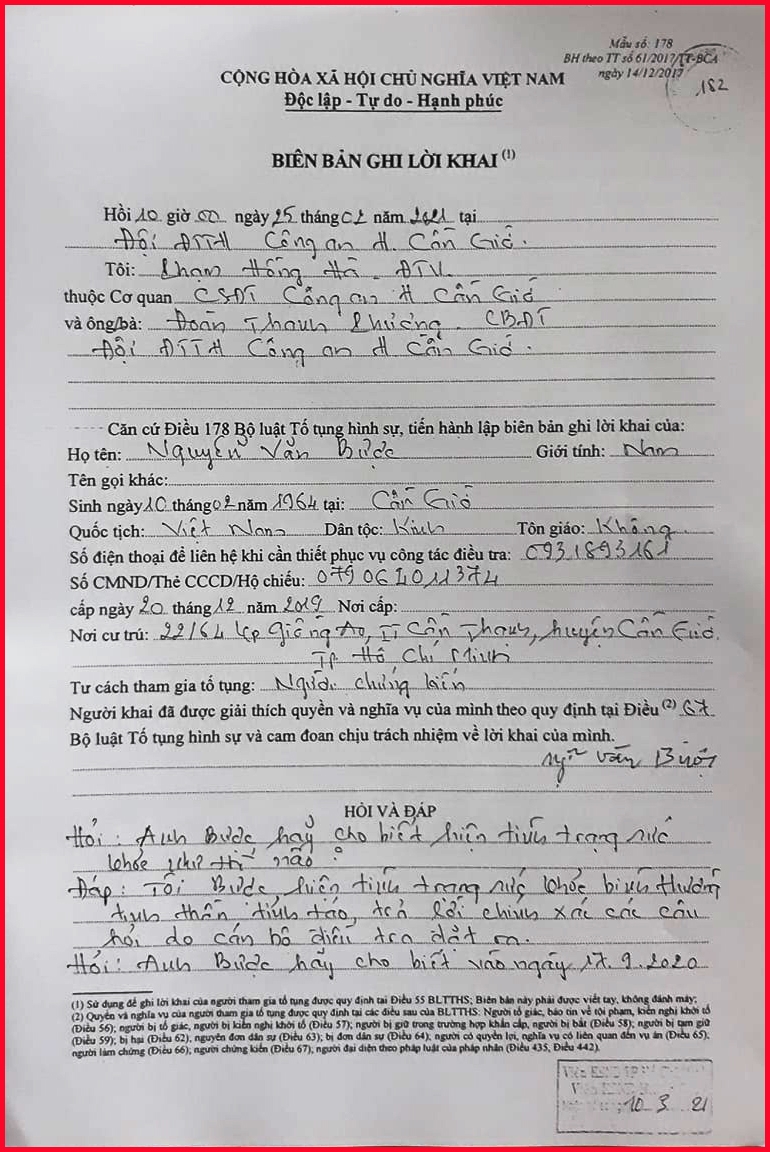 Mẫu số: 178
BH theo TT số 61/2017/TT-BCA
ngày 14/12/2017
182
CỘNG HÒA XÃ HỘI CHỦ NGHĨA VIỆT NAM
Độc lập - Tự do - Hạnh phúc
BIÊN BẢN GHI LỜI KHAI (1)
Hồi 10 giờ 00 ngày 25 tháng 02 năm 2021 tại
Đội ĐTTH Công an H. Cần Giờ.
Tôi: Phạm Hồng Hà - ĐTV
thuộc Cơ quan CSĐT Công an H Cần Giờ
và ông/bà: Đoàn Thanh Phương - CBĐT
Đội ĐTTH Công an H Cần Giờ.
Căn cứ Điều 178 Bộ luật Tố tụng hình sự, tiến hành lập biên bản ghi lời khai của:
Họ tên: Nguyễn Văn Bước Giới tính: Nam
Tên gọi khác:
Sinh ngày 10 tháng 02 năm 1964 tại: Cần Giờ
Quốc tịch: Việt Nam Dân tộc: Kinh Tôn giáo: Không
Số điện thoại để liên hệ khi cần thiết phục vụ công tác điều tra: 0931893161
Số CMND/Thẻ CCCD/Hộ chiếu: 079064011374
cấp ngày 20 tháng 12 năm 2019 Nơi cấp:
Nơi cư trú: 22/64 Kp Giồng Ao, TT Cần Thạnh, huyện Cần Giờ.
Tp Hồ Chí Minh
Tư cách tham gia tố tụng: Người chứng kiến
Người khai đã được giải thích quyền và nghĩa vụ của mình theo quy định tại Điều (2) 67
Bộ luật Tố tụng hình sự và cam đoan chịu trách nhiệm về lời khai của mình.
Ngữ văn Bước
HỎI VÀ ĐÁP
Hỏi: Anh Bước hãy cho biết hiện tình trạng sức
khỏe như thế nào?
Đáp: Tôi Bước hiện tình trạng sức khỏe bình thường
tinh thần tỉnh táo, trả lời chính xác các câu
hỏi do cán bộ điều tra đặt ra.
Hỏi: Anh Bước hãy cho biết vào ngày 17.9.2020
(1) Sử dụng để ghi lời khai của người tham gia tố tụng được quy định tại Điều 55 BLTTHS; Biên bản này phải được viết tay, không đánh máy;
(2) Quyền và nghĩa vụ của người tham gia tố tụng được quy định tại các điều sau của BLTTHS: Người tố giác, báo tin về tội phạm, kiến nghị khởi tố
(Điều 56); người bị tố giác, người bị kiến nghị khởi tố (Điều 57); người bị giữ trong trường hợp khẩn cấp, người bị bắt (Điều 58); người bị tạm giữ
(Điều 59); bị hại (Điều 62); nguyên đơn dân sự (Điều 63); bị đơn dân sự (Điều 64); người có quyền lợi, nghĩa vụ có liên quan đến vụ án (Điều 65);
người làm chứng (Điều 66); người chứng kiến (Điều 67); người đại diện theo pháp luật của pháp nhân (Điều 435, Điều 442).
10 3 21